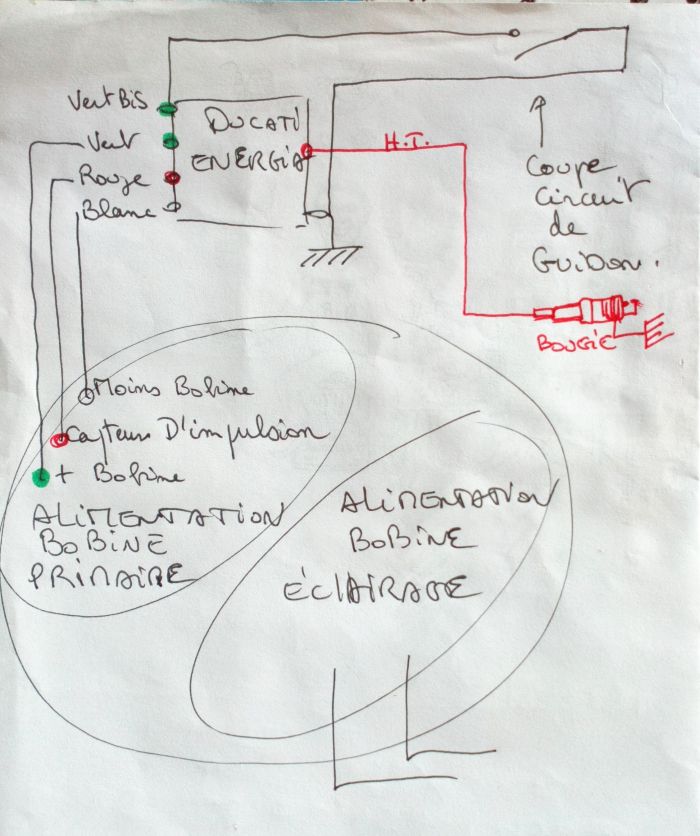 Vert Bis
Vert
Rouge
Blanc
DUCATI
ENERGIA
H.T.
Coupe
Circuit
de
GUIDON.
BOUGIE
Moins Bobine
Capteur D'impulsion
+ Bobine
ALIMENTATION
BOBINE
PRIMAIRE
ALIMENTATION
BOBINE
ÉCLAIRAGE